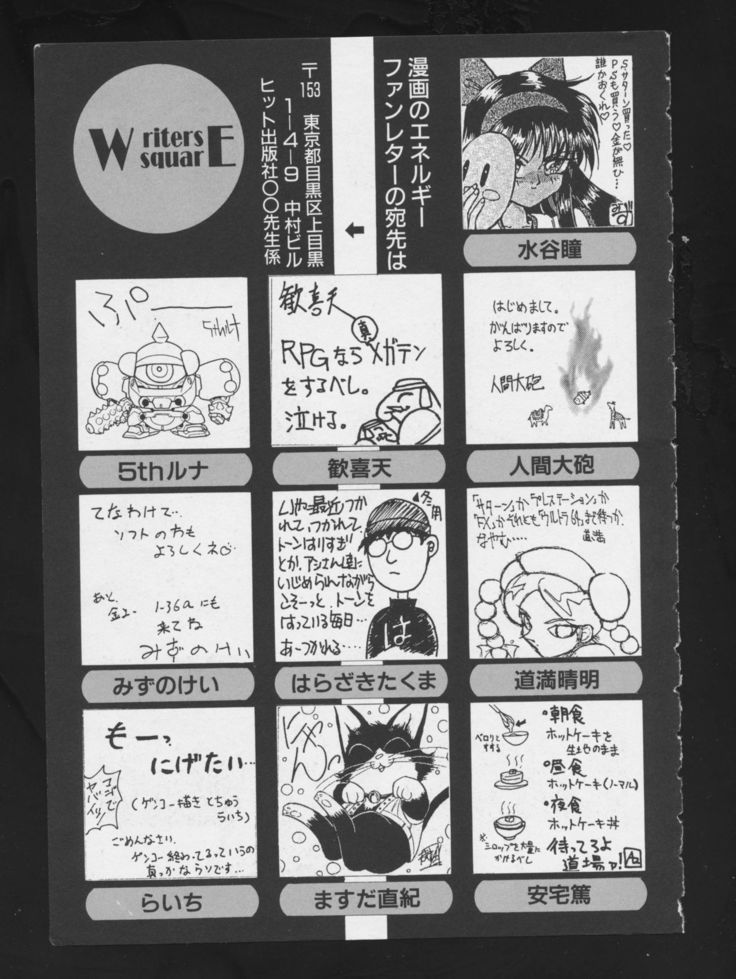 Writers
squarE
漫画のエネルギー
ファンレターの宛先は
〒153 東京都目黒区上目黒
1―4―9 中村ビル
ヒット出版社〇〇先生係
S.サターン買った♡
PSも買う♡金が無ひ…
誰かおくれ♡
水谷瞳
ぷぅ――
5thルナ
5thルナ
歓喜天
真
RPGならメガテン
をするべし。
泣ける。
歓喜天
はじめまして。
がんばりますので
よろしく。
人間大砲
人間大砲
てなわけで…
ソフトのわも
よろしくネ♡
あと、
金ユー 1-36aにも
来てね
みずのけい
みずのけい
いや最近つか
れて、つかれて、
トーンはりすぎ
とか、アシさん達に
いじめられながら
こそーっと、トーンを
はっている毎日…
あ〜つかれる…
▲冬用
は
はらざきたくま
「サターン」か「プレステーション」か
「FX」か、それとも「ウルトラ64」まで待つか、
なやむ……
道満
道満晴明
もーっ
にげたい…
コゴで
ヤバイッ!
(ゲンコー描きとちゅう
らいち)
ごめんなさい、
ゲンコー終わってるっていうの
真っかなウソです…
らいち
にゃん
ますだ直紀
°朝食
ホットケーキを
生地のまま
ペロリと
すする
°昼食
ホットケーキ(ノーマル)
°夜食
ホットケーキ丼
※シロップを大量に
かけるべし
待ってろよ
道場ァ!
安宅篤